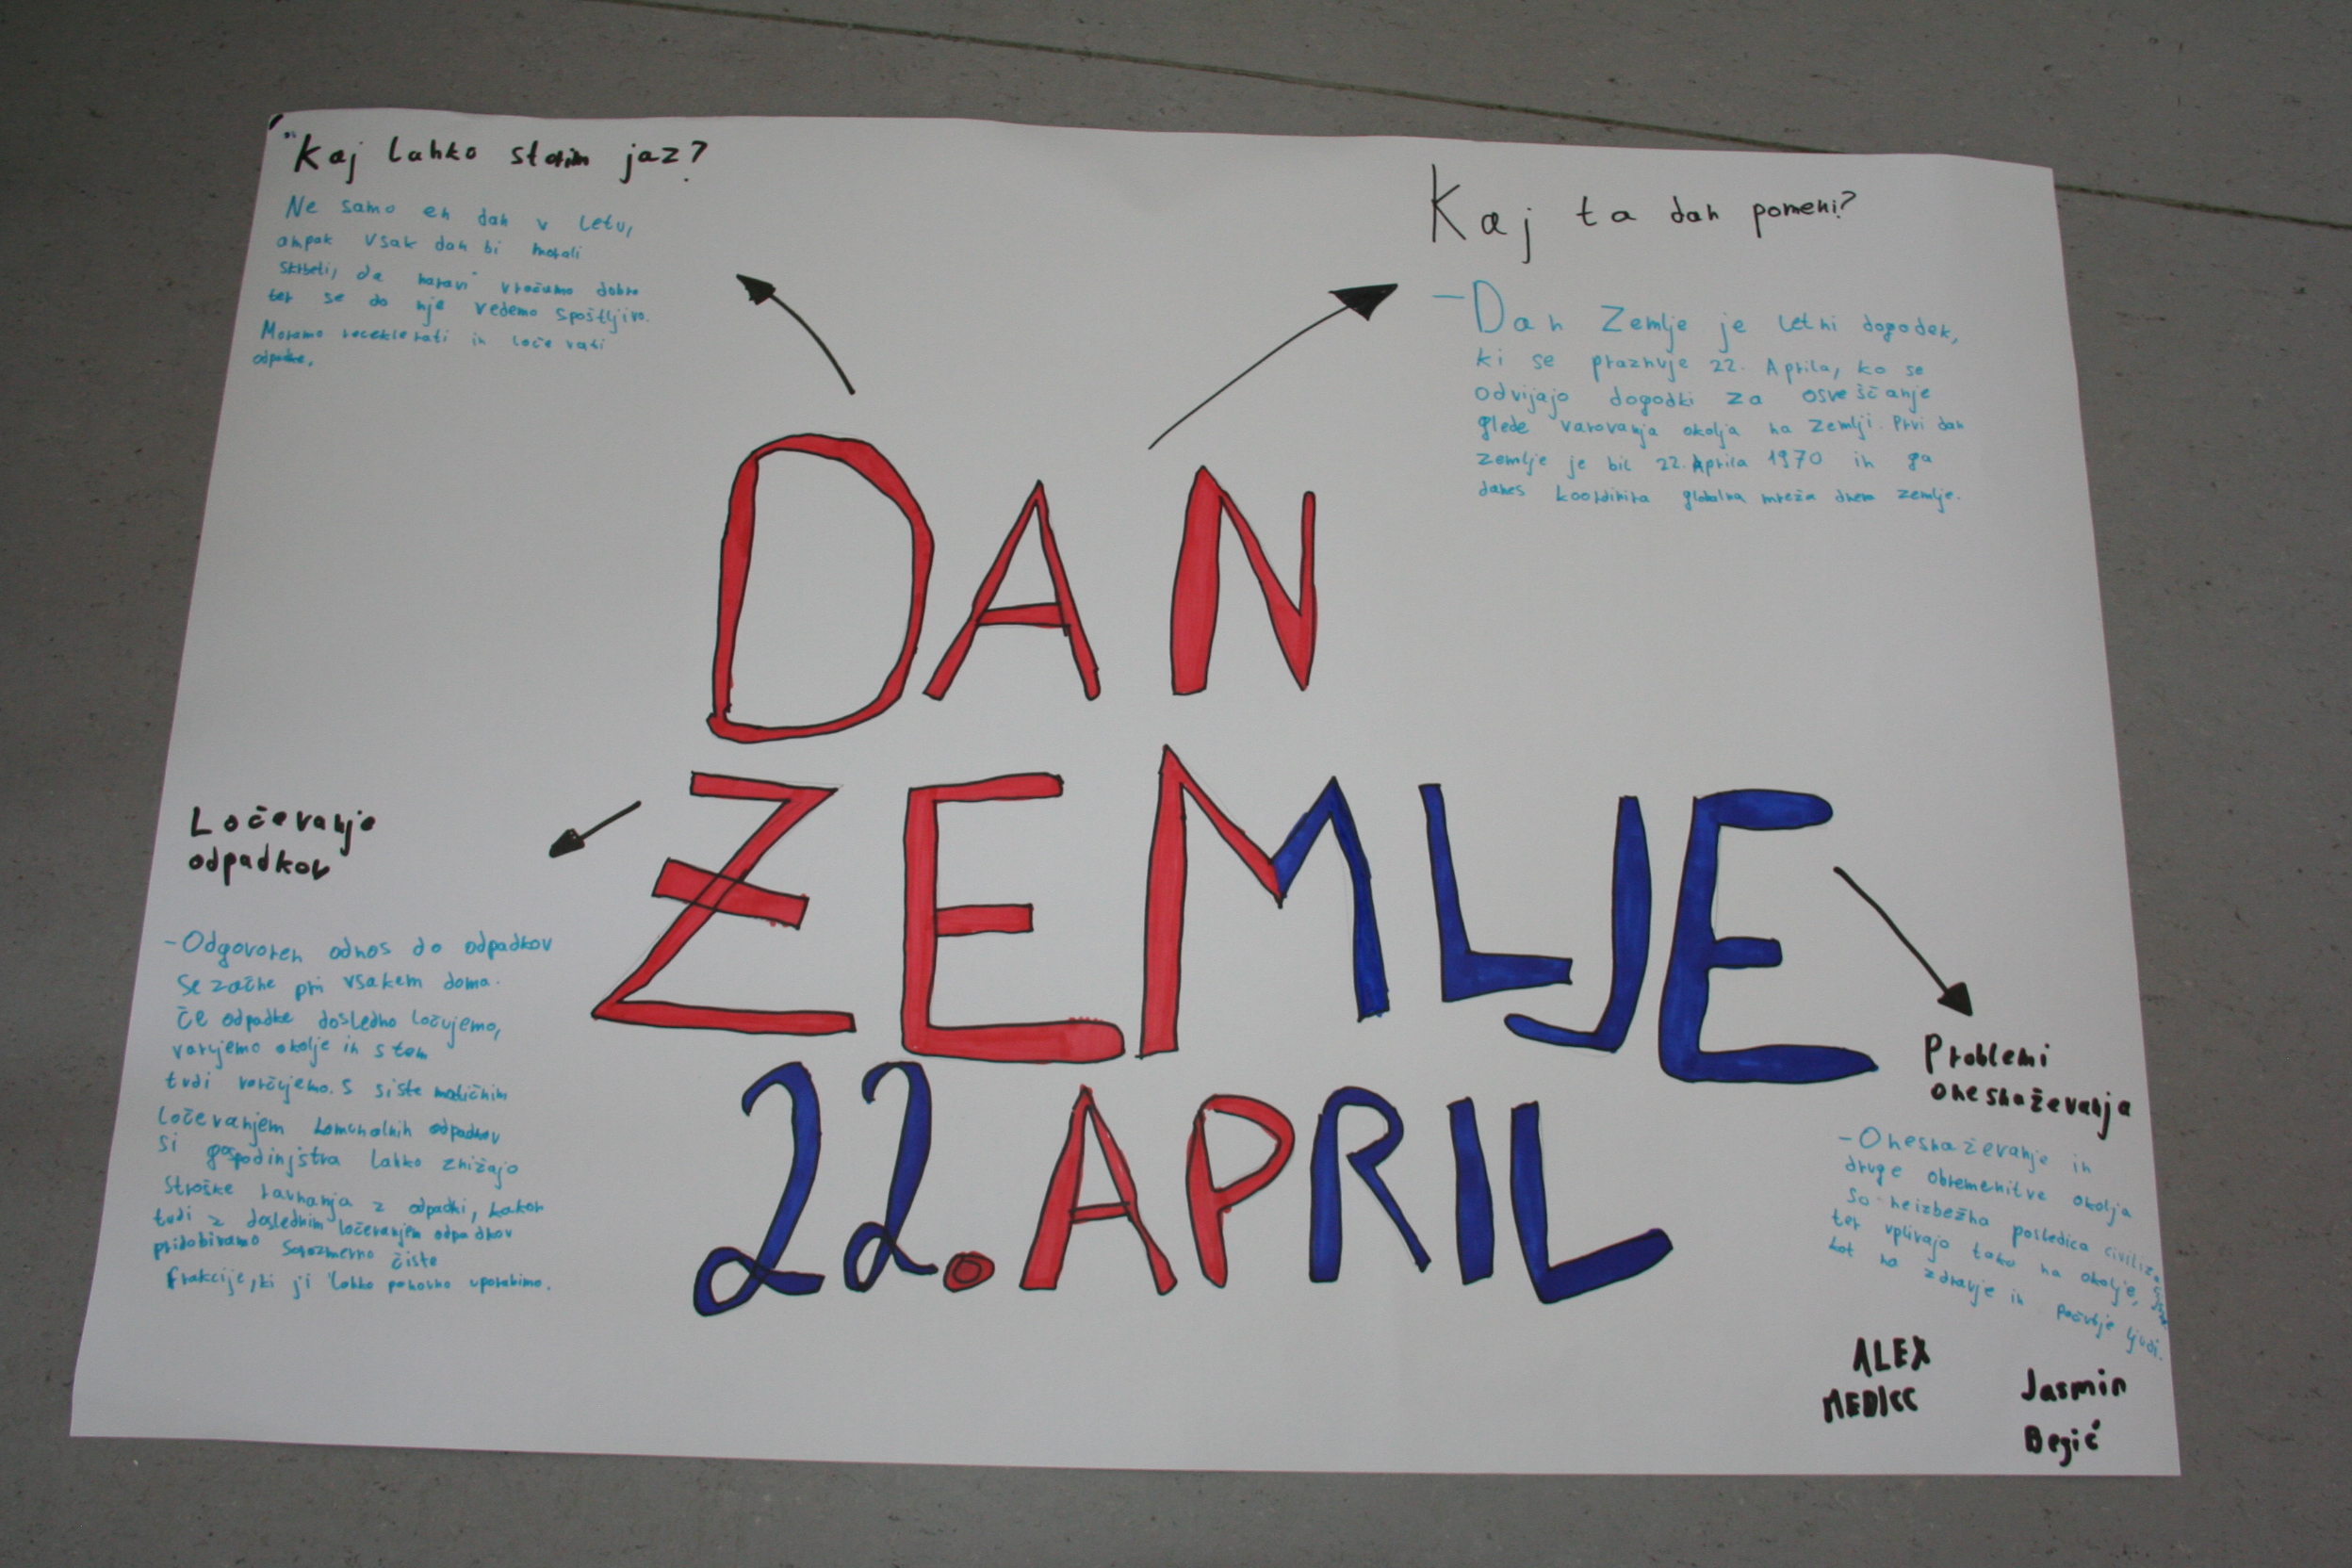 Kaj lahko storim jaz?
Ne samo en dan v letu,
ampak vsak dan bi morali
skrbeti, da naravi vračamo dobro
ter se do nje vedemo spoštljivo.
Moramo receklerati in ločevati
odpadke.
Kaj ta dan pomeni?
-Dan Zemlje je letni dogodek,
ki se praznuje 22. Aprila, ko se
odvijajo dogodki za osveščanje
glede varovanja okolja na zemlji. Prvi dan
zemlje je bil 22. Aprila 1970 in ga
danes koordinira globalna mreža dnem zemlje.
DAN
ZEMLJE
22. APRIL
Ločevanje
odpadkov
-Odgovoren odnos do odpadkov
se začne pri vsakem doma.
Če odpadke dosledno ločujemo,
varujemo okolje in s tem
tudi varčujemo. S sistematičnim
ločevanjem komunalnih odpadkov
si gospodinjstva lahko znižajo
stroške ravnanja z odpadki, kakor
tudi z doslednim ločevanjem odpadkov
pridobivamo sorazmerno čiste
frakcije, ki ji lahko ponovno uporabimo.
Problemi
onesnaževanja
-Onesnaževanje in
druge obremenitve okolja
so neizbežna posledica civilizacije
ter vplivajo tako na okolje,
kot na zdravje in počutje ljudi.
ALEX
MEDICC
Jasmin
Begić